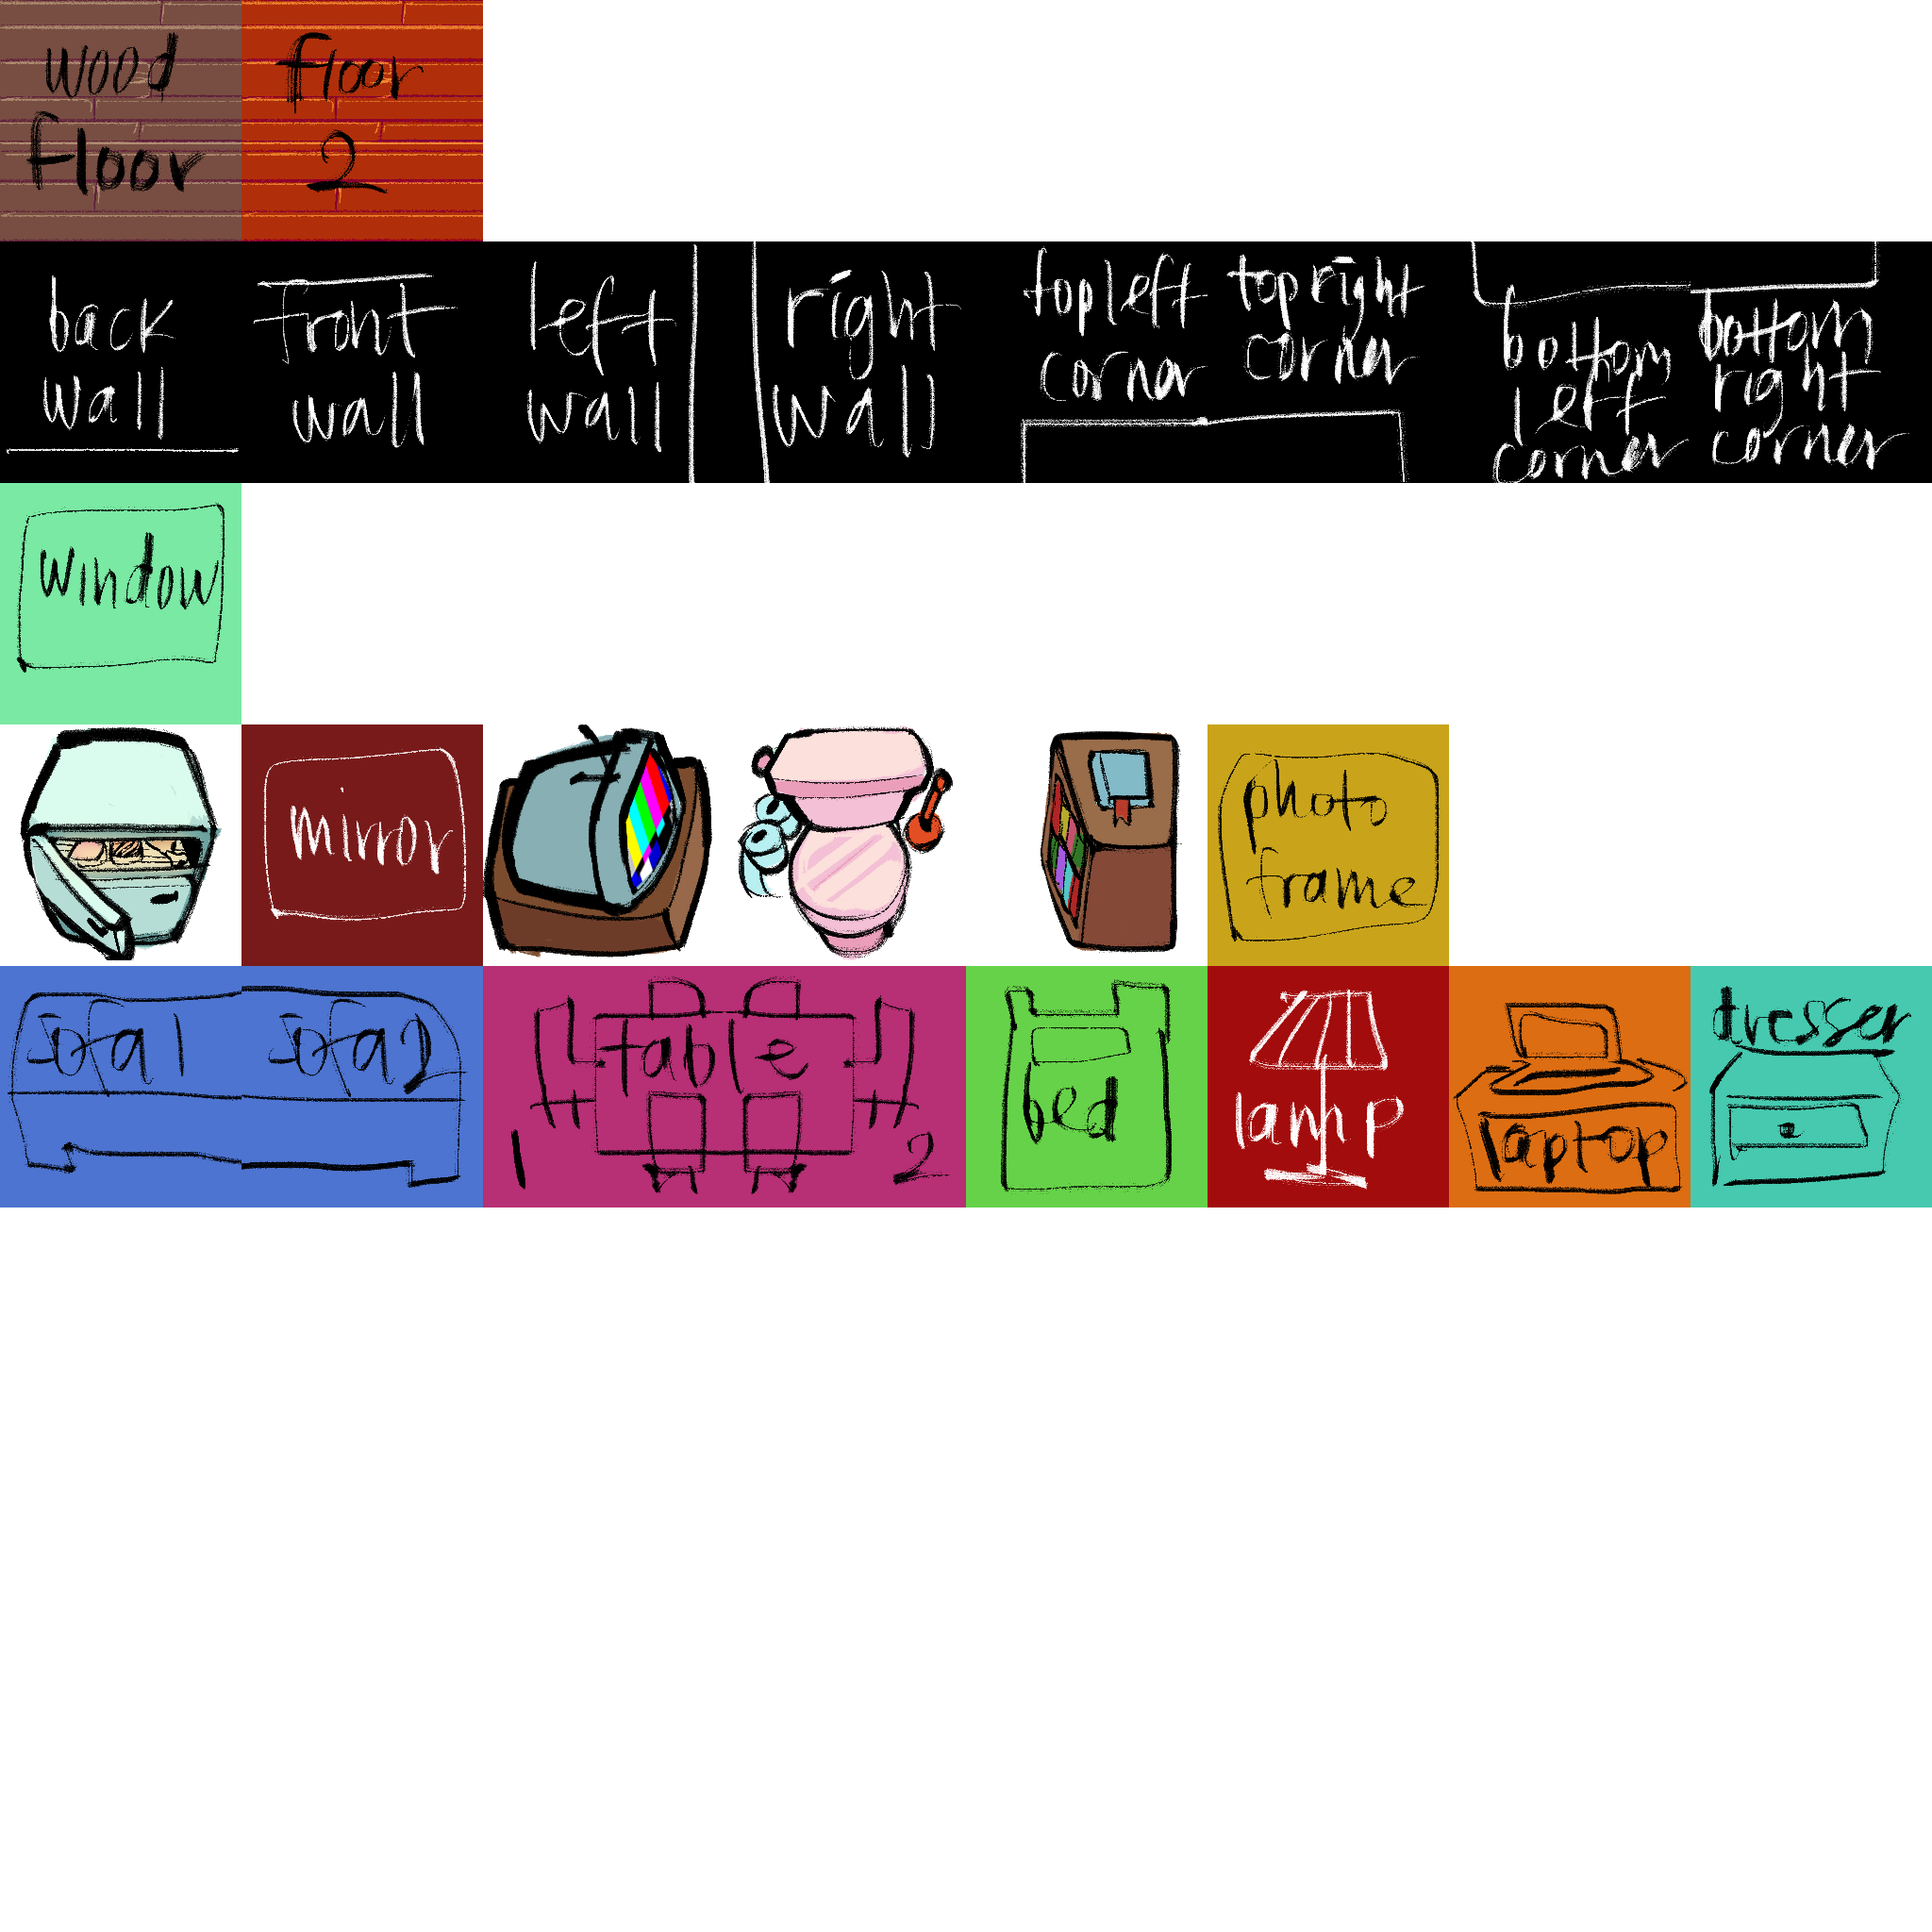 wood
floor
floor
2
back
wall
front
wall
left
wall
right
wall
top left
corner
top right
corner
bottom
left
corner
bottom
right
corner
window
mirror
photo
frame
sofa 1
sofa 2
table
1
2
bed
lamp
laptop
dresser